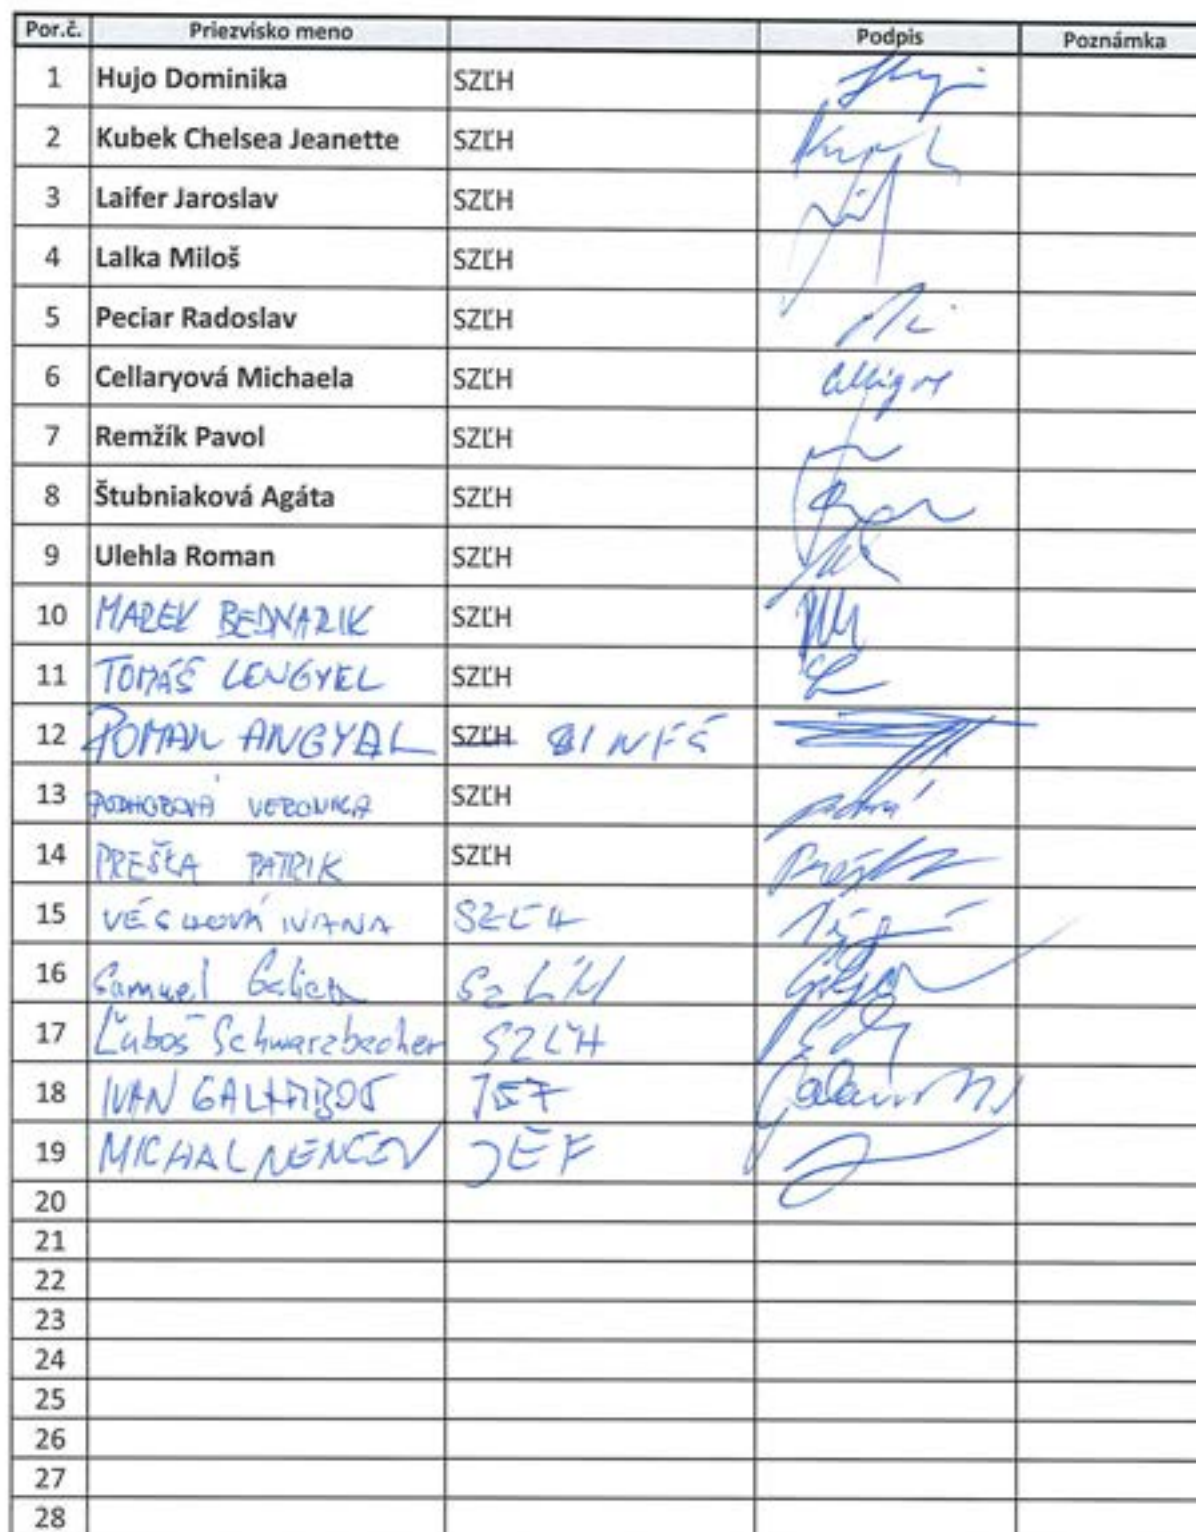 Por.č. Priezvisko meno Podpis Poznámka
1 Hujo Dominika SZĽH
2 Kubek Chelsea Jeanette SZĽH
3 Laifer Jaroslav SZĽH
4 Lalka Miloš SZĽH
5 Peciar Radoslav SZĽH
6 Cellaryová Michaela SZĽH
7 Remžík Pavol SZĽH
8 Štubniaková Agáta SZĽH
9 Ulehla Roman SZĽH
10 MAREK BEDNARIK SZĽH
11 TOMÁŠ LENGYEL SZĽH
12 ROMAN ANGYAL SZĽH
13 VERONIKA SZĽH
14 PREŠKA PATRIK SZĽH Preška
15 IVANA SZĽH
16 Samuel SZĽH
17 Ľuboš Schwarzbacher SZĽH
18 IVAN JEF
19 MICHAL JEF
20
21
22
23
24
25
26
27
28